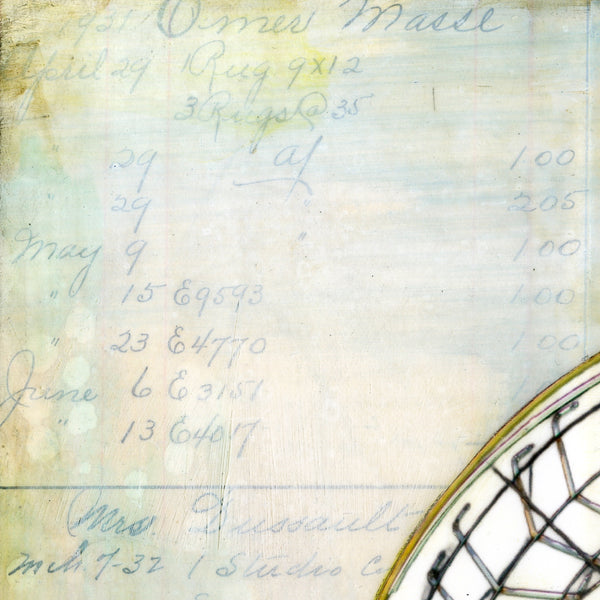 1931 Omer Masse
April 29 1 Rug 9x12
3 Rugs @ 35
29 a/ 1 00
" 29 " 2 05
May 9 " 1 00
" 15 E9593 1 00
" 23 E4770 1 00
June 6 E3151 1
" 13 E4017
Mrs. Dussault
Mch 7-32 1 Studio